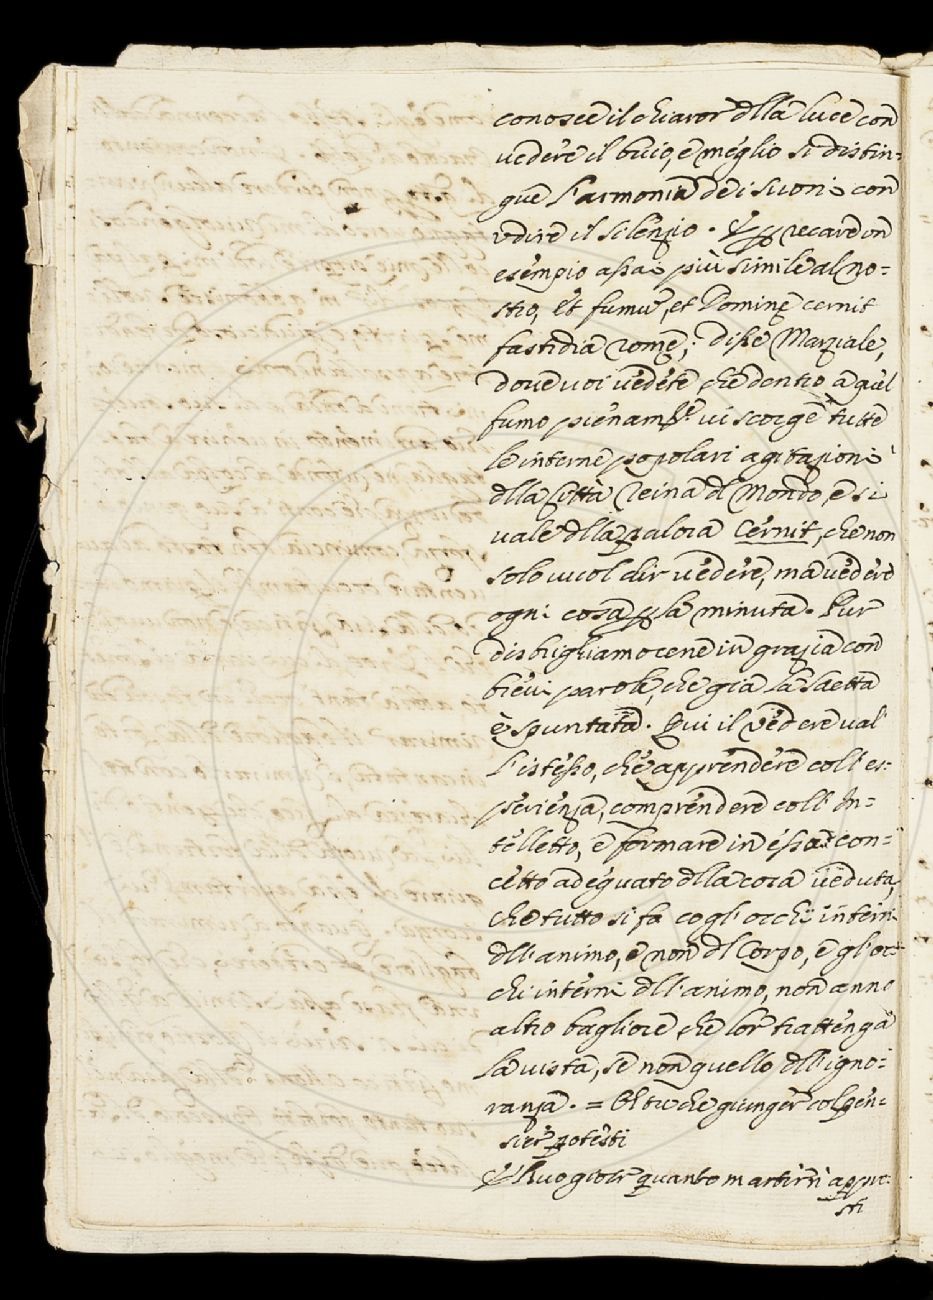 conosce il chiaror dlla luce con
vedere il buio, e meglio si distin=
gue l'armonia de i suoni con
vdire il silenzio. E recare un
esempio assai più simile al no=
stro, et fumū, et Domine cernit
fastidia rome; disse Marziale,
dove voi vedete che dentro a quel
fumo pienam.te vi scorge tutte
le interne popolari agitazioni
dlla Città reina dl Mondo, e si
vale dlla parola Cernit, che non
solo vuol dir vedere, ma vedere
ogni cosa la minuta. Pur
disbrighiamocene in grazia con
brievi parole, che gia la saetta
è spuntata. Qui il vedere val
l'istesso, che apprendere coll'es=
perienza, comprendere coll'In=
telletto, e formare in essa con=
cetto adeguato dlla cosa veduta,
che tutto si fa cogl'occhi interni
dll'animo, e non dl Corpo, e gl'oc=
chi interni dll'animo, non anno
altro bagliore che lor trattenga
la vista, se non quello dll'igno=
ranza. = Oh tu che giunger col pen=
sier potesti
E l'Auo gioir quanto martirii appre=
sti